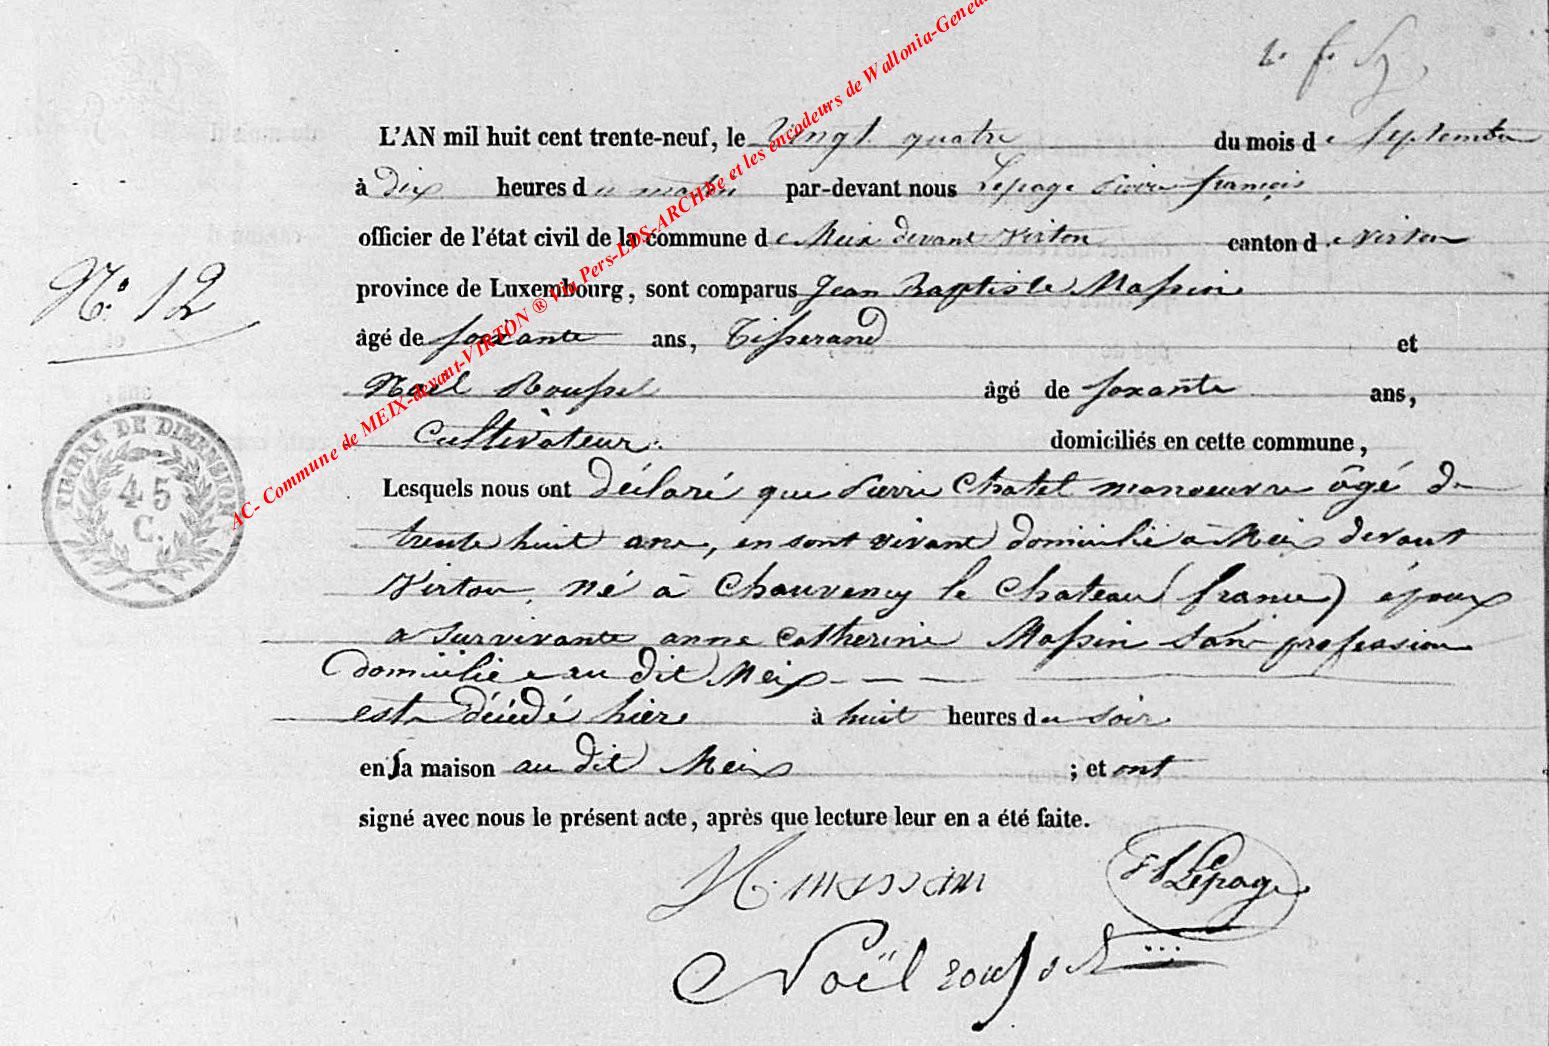 L'AN mil huit cent trente-neuf, le Vingt quatre du mois de Septembre
à dix heures du matin par-devant nous Lepage Pierre françois
officier de l'état civil de la commune de Meix devant Virton canton de Virton
province de Luxembourg, sont comparus Jean Baptiste Massin
N.° 12
âgé de soixante ans, Tisserand et
Noël Roussel âgé de soxante ans,
Cultivateur. domiciliés en cette commune,
TIMBRE DE DIMENSION
45
C.
Lesquels nous ont déclaré que Pierre Chatel manoeuvre âgé de
trente huit ans, en sont vivant domicilié à Meix devant
Virton, né à Chauvency le Chateau (france) époux
a survivante anne Catherine Massin sans profession
domiciliée au dit Meix
est décédé hier à huit heures du soir
en sa maison au dit Meix ; et ont
signé avec nous le présent acte, après que lecture leur en a été faite.
massin
Lepage
Noël roussel
AC- Commune de MEIX-devant-VIRTON ® via Pers-LDS-ARCHbe et les encodeurs de Wallonia-Genea